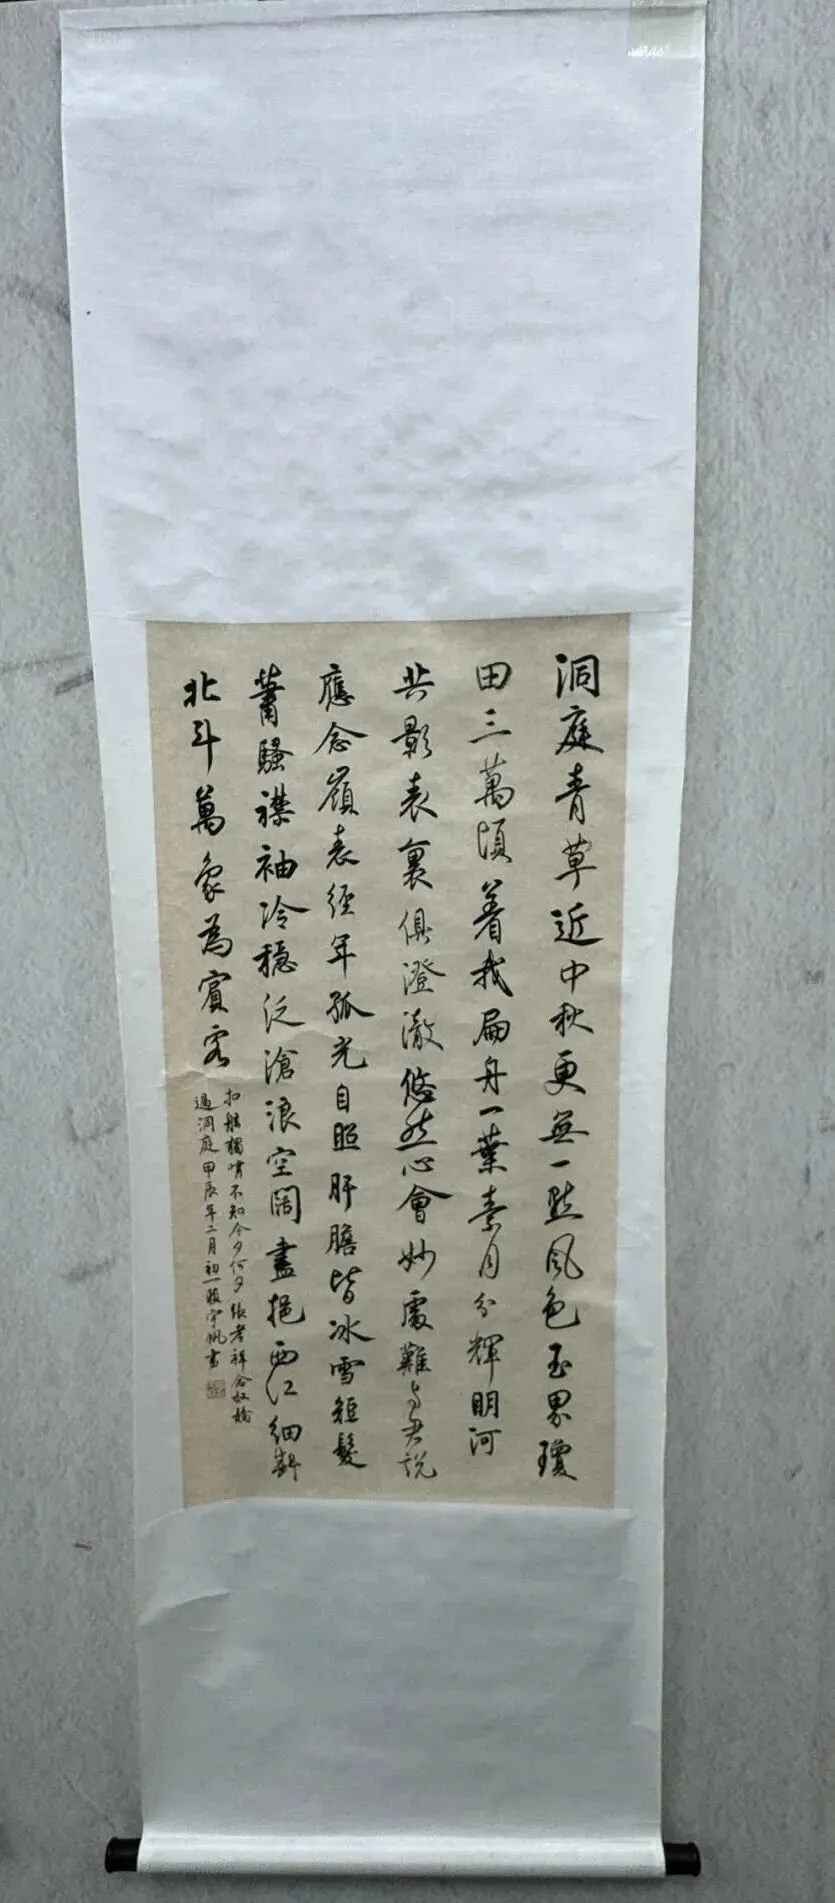 洞庭青草近中秋更無一點風色玉界瓊
田三萬頃着我扁舟一葉素月分輝明河
共影表裏俱澄澈悠然心會妙處難與君說
應念嶺表經年孤光自照肝膽皆冰雪短髮
蕭騷襟袖冷穩泛滄浪空闊盡挹西江細斟
北斗萬象為賓客
扣舷獨嘯不知今夕何夕張孝祥念奴嬌
過洞庭甲辰年二月初一宇帆書